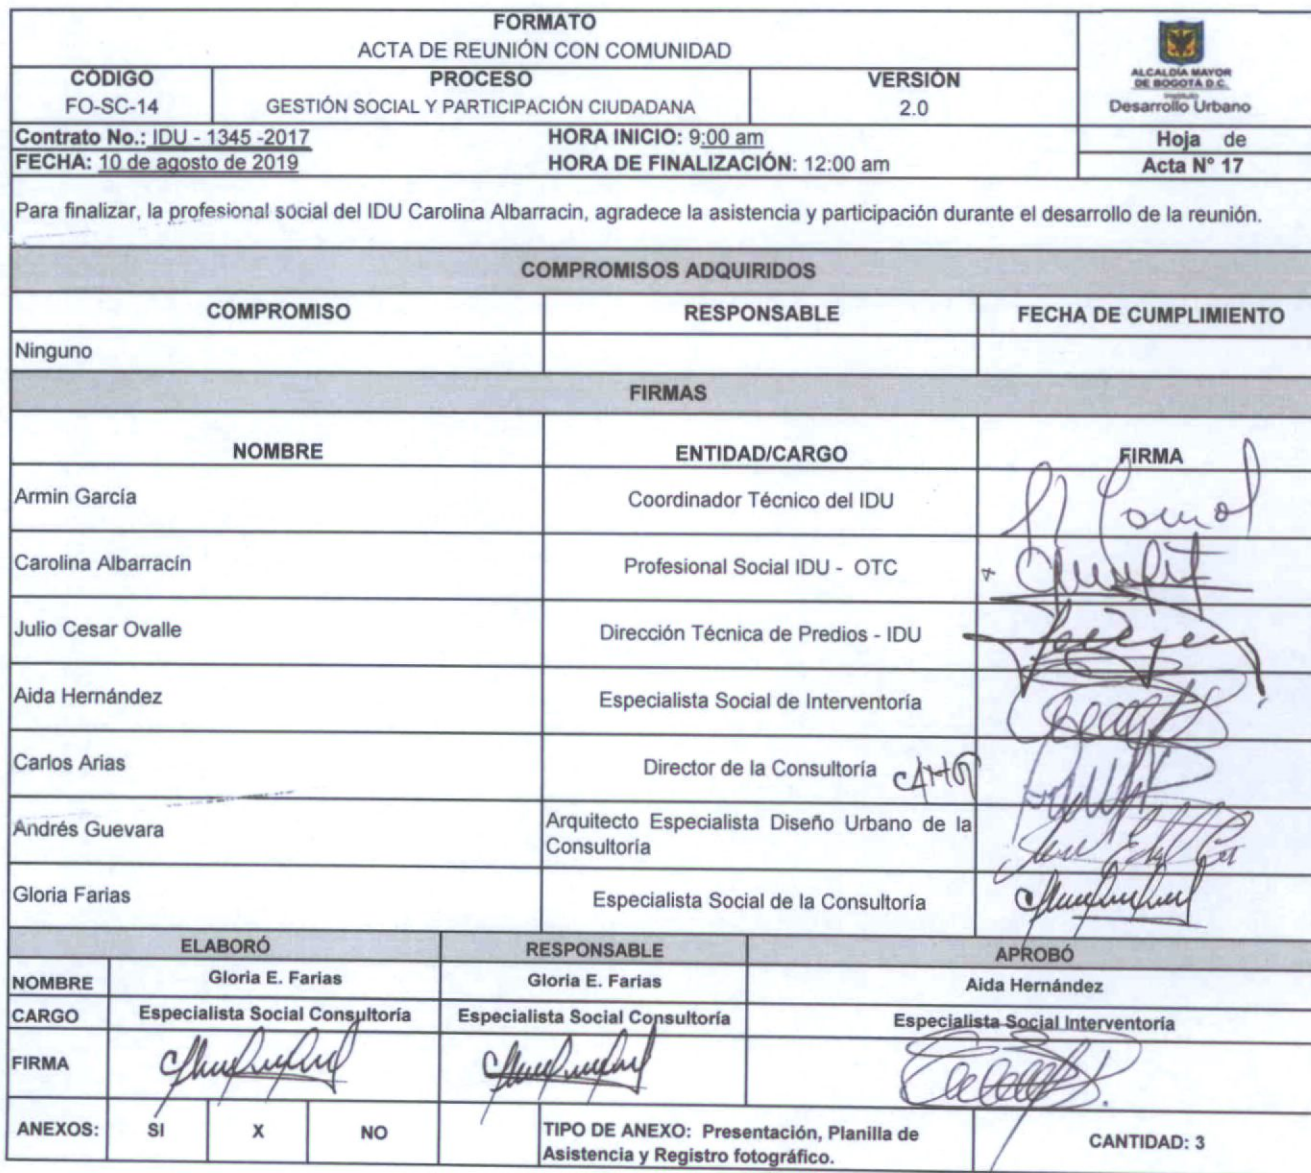 FORMATO
ACTA DE REUNIÓN CON COMUNIDAD
CÓDIGO PROCESO VERSIÓN
FO-SC-14 GESTIÓN SOCIAL Y PARTICIPACIÓN CIUDADANA 2.0
ALCALDÍA MAYOR
DE BOGOTÁ D.C.
Instituto
Desarrollo Urbano
Contrato No.: IDU - 1345 -2017 HORA INICIO: 9:00 am Hoja de
FECHA: 10 de agosto de 2019 HORA DE FINALIZACIÓN: 12:00 am Acta N° 17
Para finalizar, la profesional social del IDU Carolina Albarracin, agradece la asistencia y participación durante el desarrollo de la reunión.
COMPROMISOS ADQUIRIDOS
COMPROMISO RESPONSABLE FECHA DE CUMPLIMIENTO
Ninguno
FIRMAS
NOMBRE ENTIDAD/CARGO FIRMA
Armin García Coordinador Técnico del IDU
Carolina Albarracín Profesional Social IDU - OTC
Julio Cesar Ovalle Dirección Técnica de Predios - IDU
Aida Hernández Especialista Social de Interventoría
Carlos Arias Director de la Consultoría
Andrés Guevara Arquitecto Especialista Diseño Urbano de la
Consultoría
Gloria Farias Especialista Social de la Consultoría
ELABORÓ RESPONSABLE APROBÓ
NOMBRE Gloria E. Farias Gloria E. Farias Aida Hernández
CARGO Especialista Social Consultoría Especialista Social Consultoría Especialista Social Interventoría
FIRMA
ANEXOS: SI X NO TIPO DE ANEXO: Presentación, Planilla de
Asistencia y Registro fotográfico. CANTIDAD: 3